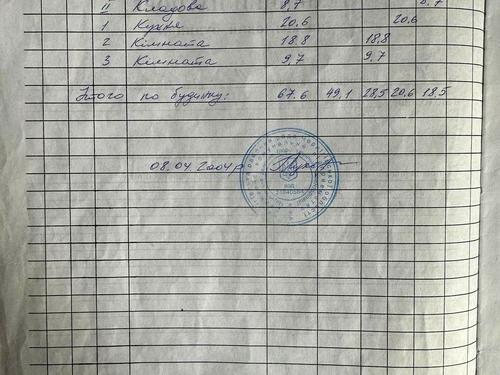 II Кладова 8,7 8,7
1 Кухне 20.6 20.6
2 Кімната 18.8 18.8
3 Кімната 9,7 9,7
Итого по будинку: 67.6 49,1 28,5 20,6 18,5
08.04.2004р